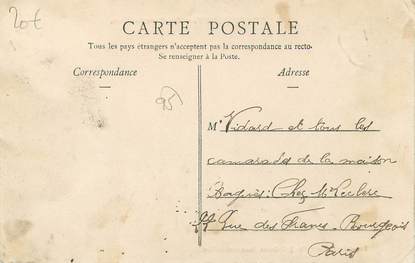 20€
CARTE POSTALE
Tous les pays étrangers n'acceptent pas la correspondance au recto-
Se renseigner à la Poste.
Correspondance
Adresse
95
Mr Vidard et tous les
camarades de la maison
Chez Mr Leclerc
Rue des Francs-Bourgeois
Paris